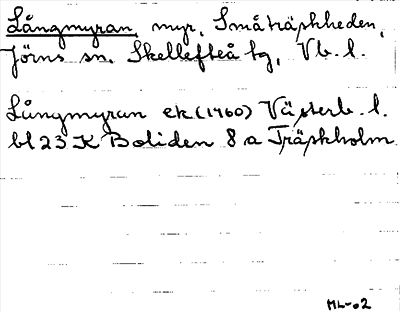 Långmyran, myr, Småträskheden,
Jörns sn, Skellefteå tg, Vb. l.
Långmyran ek (1960) Västerb. l.
bl 23 K Boliden 8 a Träskholm
ML-02